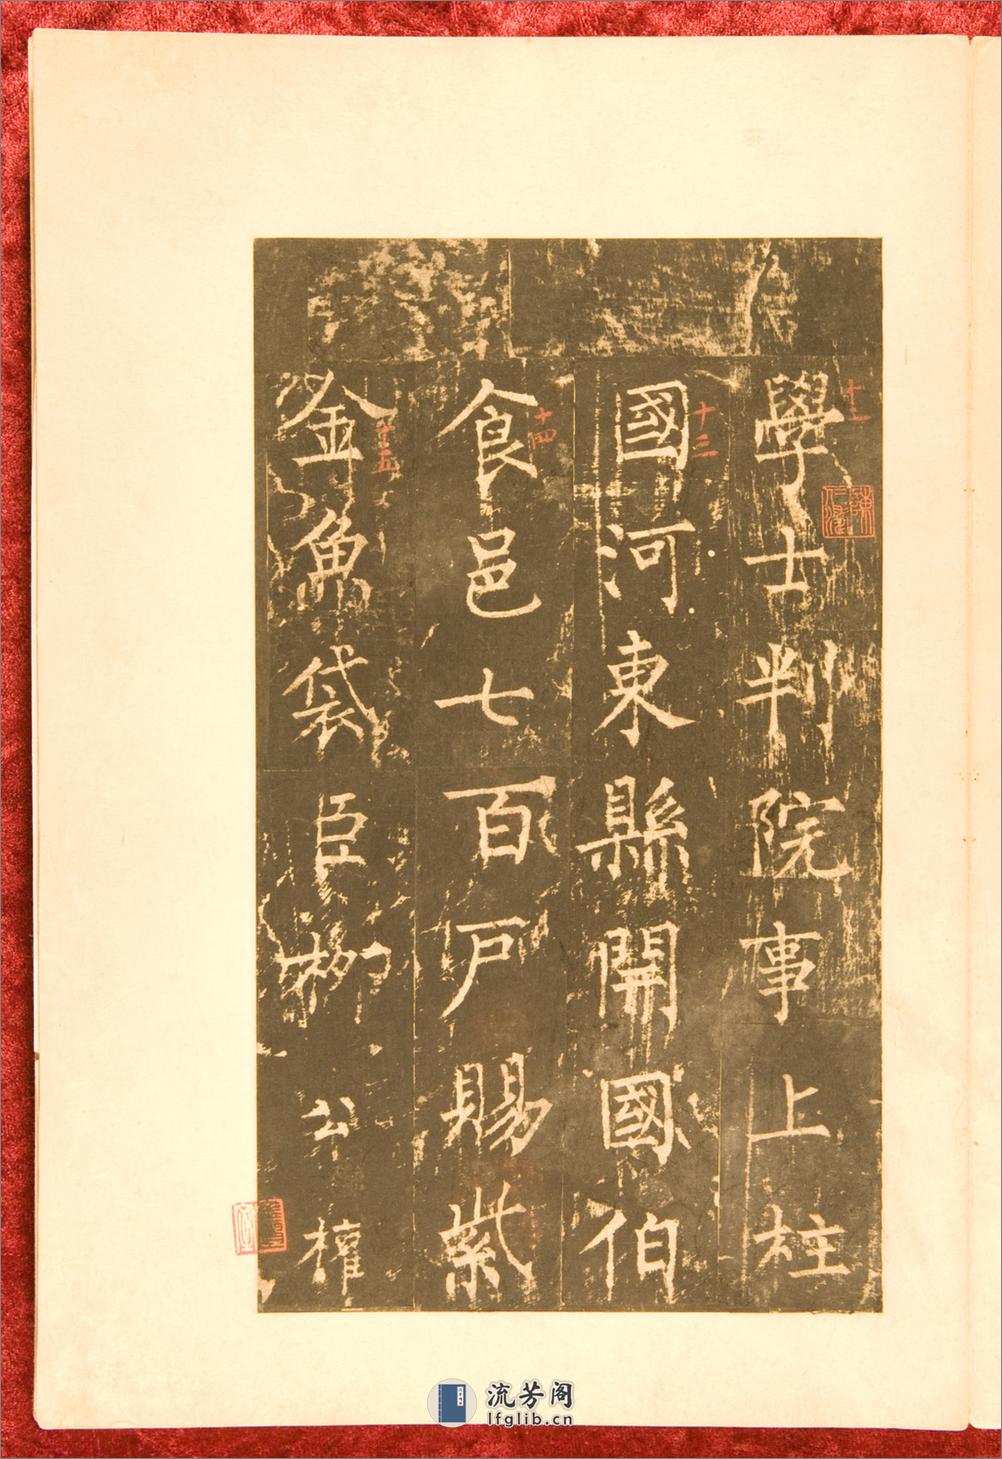 學士判院事上柱
十二
國河東縣開國伯
十三
食邑七百戶賜紫
十四
金魚袋臣柳公權
十五
流芳阁
lfglib.cn